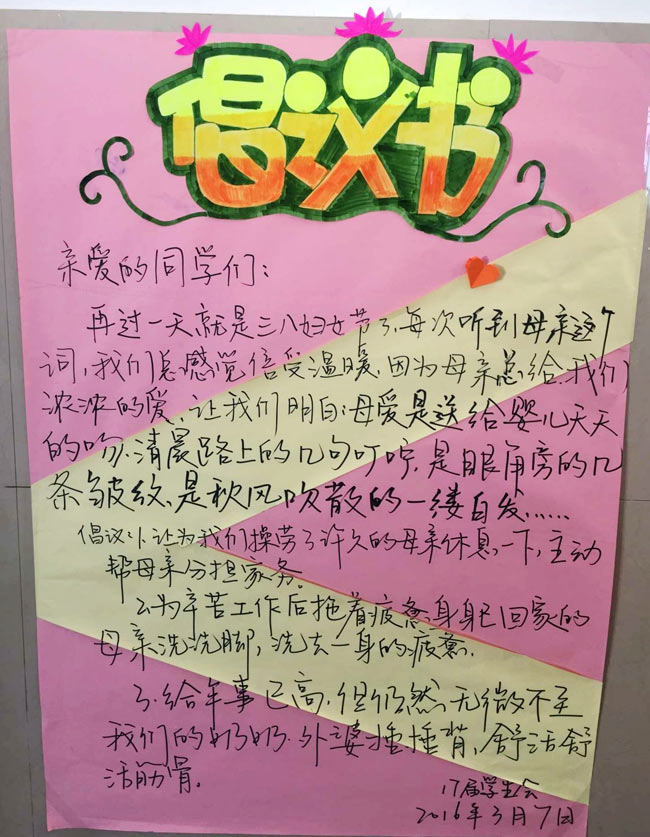 倡议书
亲爱的同学们：
再过一天就是三八妇女节了，每次听到母亲这个
词，我们总感觉倍受温暖，因为母亲总给我们
浓浓的爱，让我们明白：母爱是送给婴儿天天
的吻，清晨路上的几句叮咛，是眼角旁的几
条皱纹，是秋风吹散的一缕白发……
倡议：1、让为我们操劳了许久的母亲休息一下，主动
帮母亲分担家务。
2、为辛苦工作后拖着疲惫身躯回家的
母亲洗洗脚，洗去一身的疲惫。
3、给年事已高，但仍然无微不至
我们的奶奶、外婆捶捶背，舒活舒
活筋骨。
17届学生会
2016年3月7日